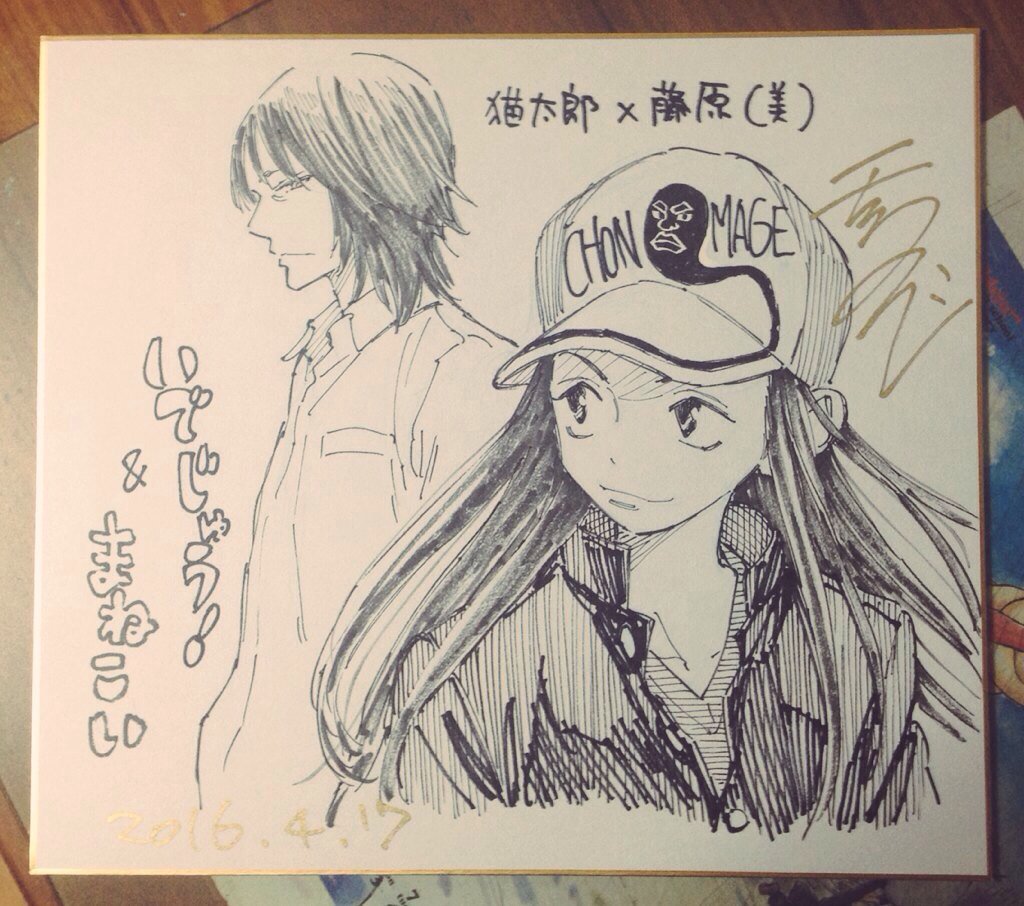 猫太郎×藤原(美)
CHON MAGE
いでじゅう!
&
まねこい
2016.4.17